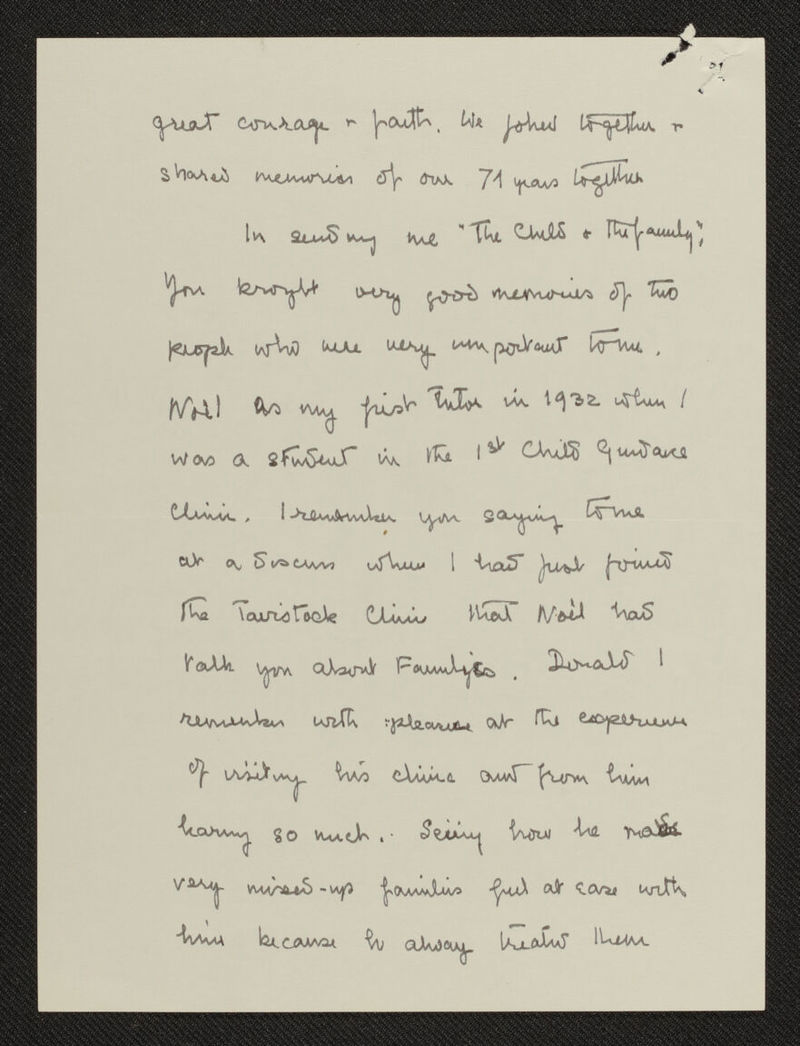 great courage + faith. We joked together +
shared memories of our 71 years together
In sending me "The Child + the family",
You brought very good memories of two
people who were very important to me.
Noël as my first Tutor in 1932 when I
was a student in the 1st Child Guidance
Clinic. I remember you saying to me
at a discuss when I had just joined
the Tavistock Clinic that Noël had
talk you about Families. Donald I
remember with pleasure at the experience
of visiting his clinic and from him
learning so much. Seeing how he made
very mixed-up families feel at ease with
him because he alway treated them